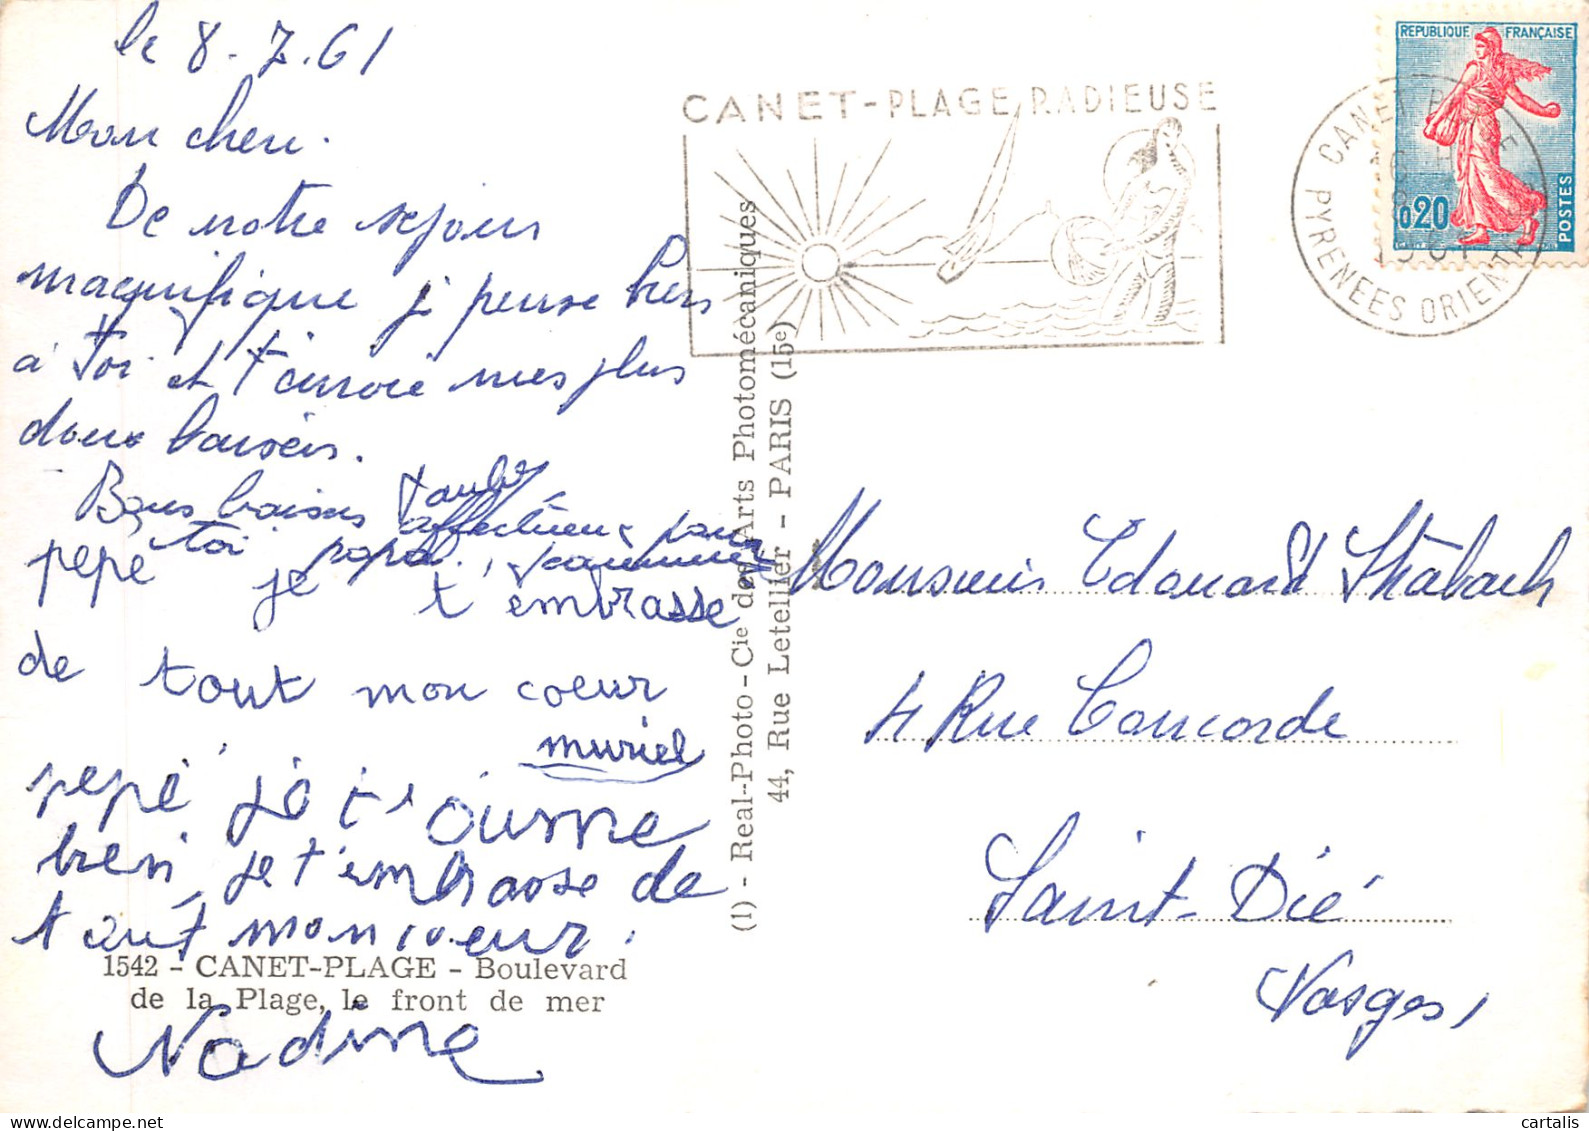 le 8.7.61
Mon cheri.
De notre sejour
magnifique je pense bien
à Toi et t'envoie mes plus
doux baisers.
Bons baisers
affectueux pour
toi papa
pepe je t'embrasse
de tout mon coeur
muriel
pepé je t'aime
bien, je t'embrasse de
tout mon coeur.
1542 - CANET-PLAGE - Boulevard
de la Plage, le front de mer
Nadine
(1) - Real-Photo - Cie des Arts Photomécaniques
44, Rue Letellier - PARIS (15e)
CANET-PLAGE RADIEUSE
REPUBLIQUE FRANÇAISE
0,20
POSTES
CANET PLAGE
PYRENEES ORIENTALES
Monsieur Edouard
4 Rue Concorde
Saint-Dié
Vosges,
cartalis
www.delcampe.net